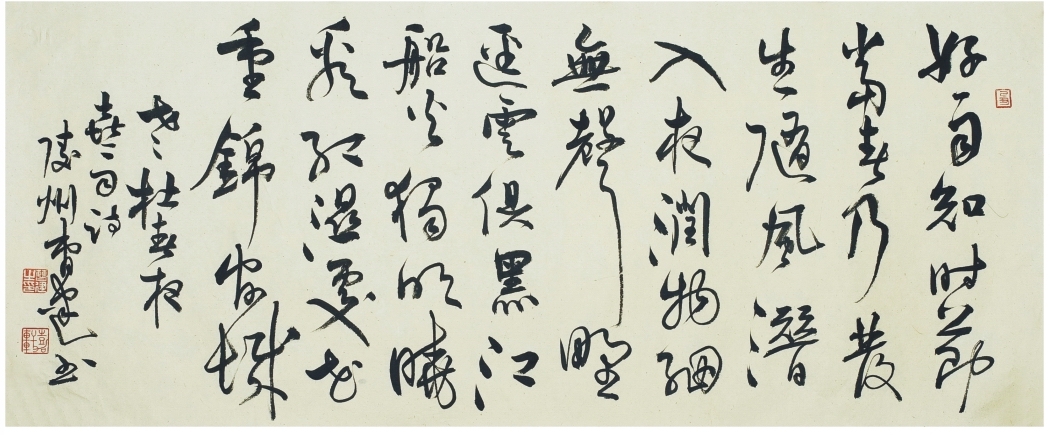 好雨知时節
當春乃發
生隨風潛
入夜潤物細
無聲野
逕雲俱黑江
船火獨明曉
看紅濕處花
重錦官城
老杜春夜
喜雨詩
陵州书